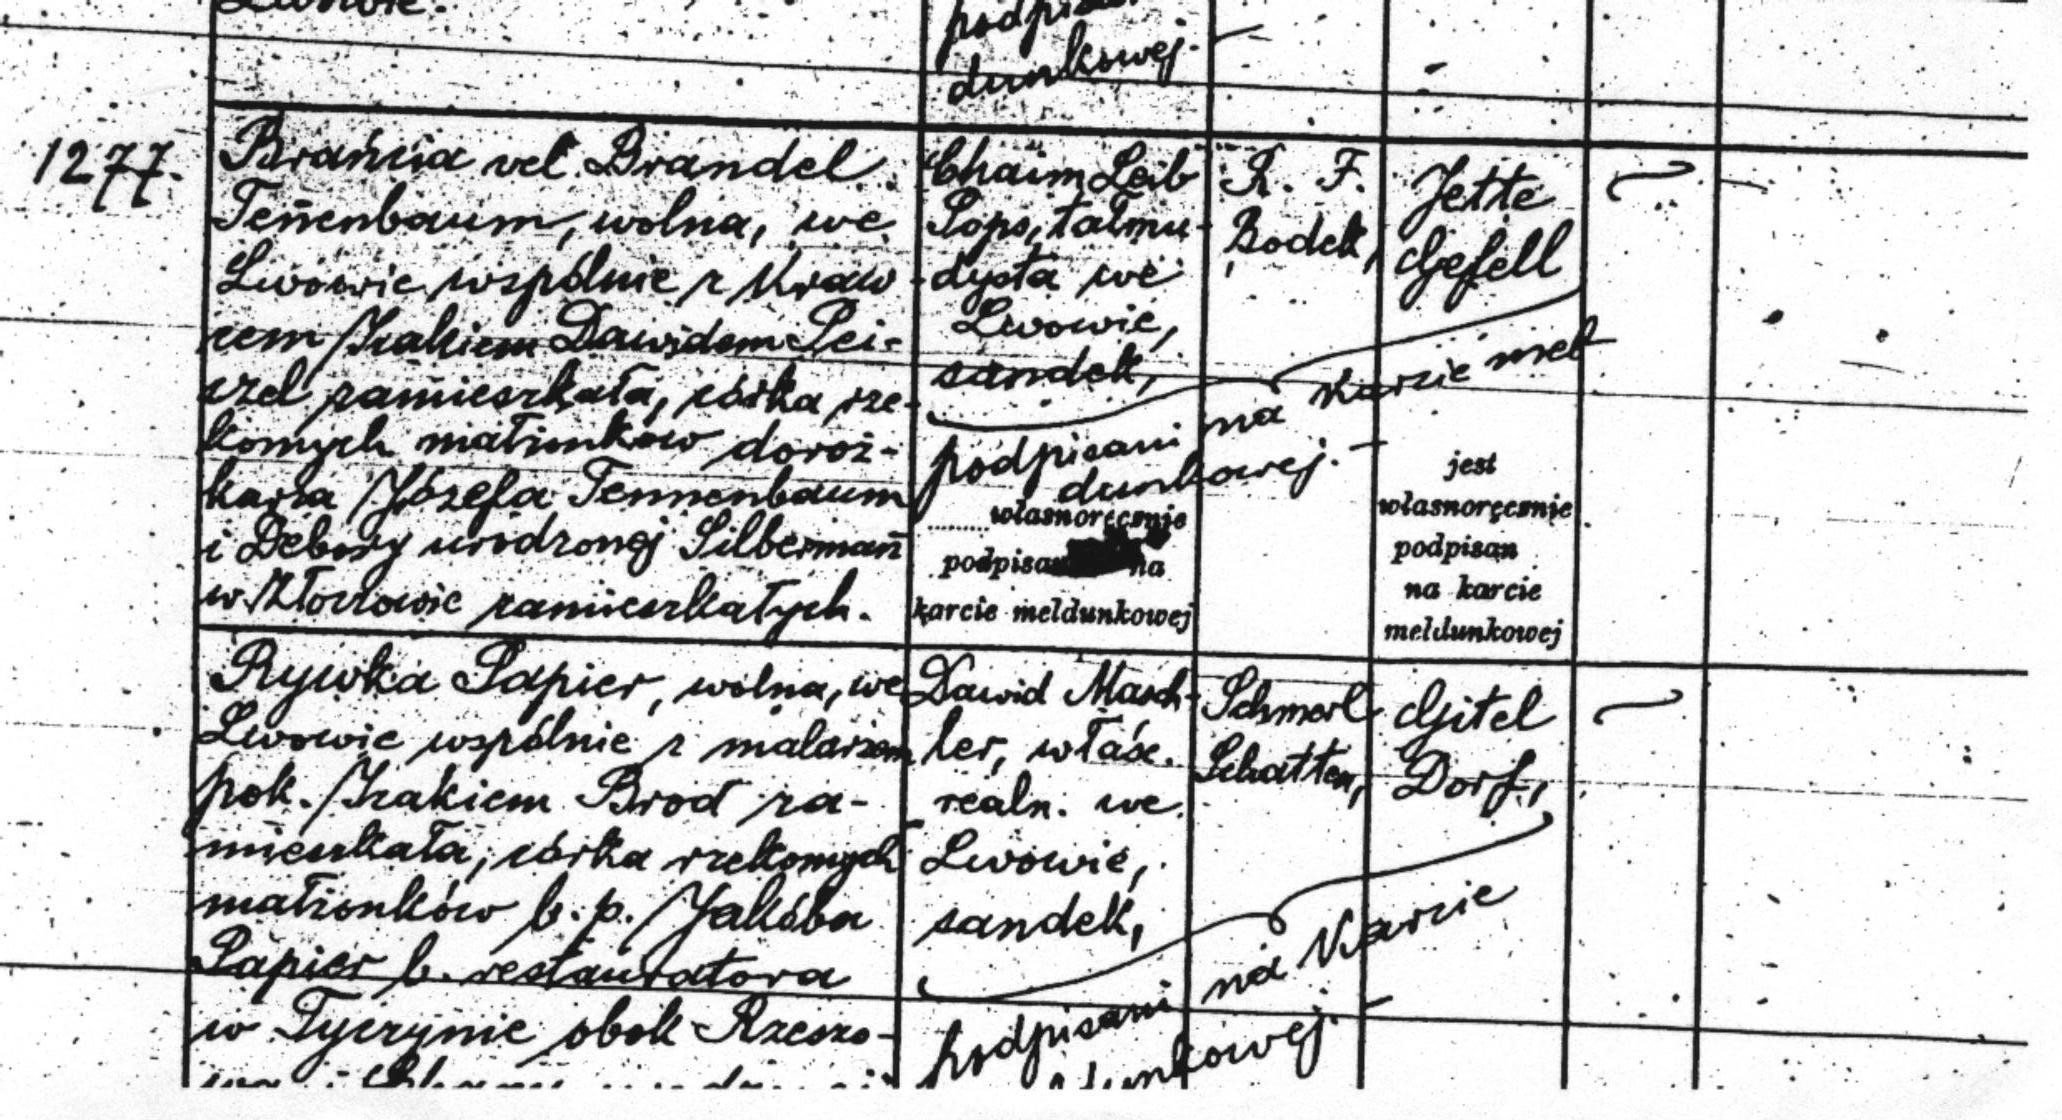 Lwowie.
podpisani
dunkowej.
1277.
Brańcia vel Brandel
Tennenbaum, wolna, we
Lwowie wspólnie z kraw-
cem Izakiem Dawidem Pei-
czel zamieszkała, córka rze-
komych małżonków doroż-
karza Józefa Tennenbaum
i Debory urodzonej Silbermann
w Złoczowie zamieszkałych.
Chaim Leib
Pops, talmu-
dysta we
Lwowie,
sandek,
R. F.
Bodek,
Jette
Gefell
podpisani na karcie mel-
dunkowej. –
własnoręcznie
podpisan na
karcie meldunkowej
jest
własnoręcznie
podpisan
na karcie
meldunkowej
Rywka Papier, wolna, we
Lwowie wspólnie z malarzem
pok. Izakiem Brod za-
mieszkała, córka rzekomych
małżonków b. p. Jakóba
Papier b. restauratora
w Tyczynie obok Rzeszo-
Dawid Masch-
ler, właśc.
realn. we
Lwowie,
sandek,
Schmerl
Schatten,
Gitel
Dorf,
podpisani na karcie
dunkowej. –